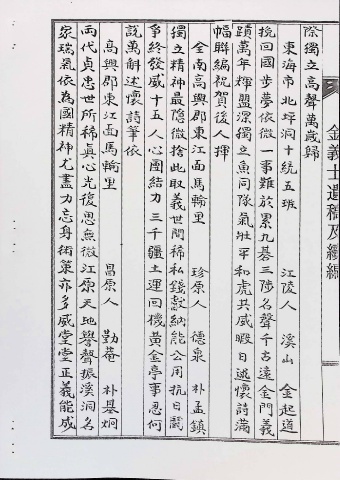 金義士遺稿及續編
際獨立高聲萬歲歸
東海市北坪洞十統五班 江陵人 溪山 金起道
挽回國步夢依微一事難於累九碁三陟名聲千古遠金門義
蹟萬年輝盟深獨立魚同隊氣壯平和虎共威暇日述懷詩滿
幅聯編祝賀後人揮
全南高興郡東江面馬輪里 珍原人 德泉 朴孟鎮
獨立精神最隱微捨此取義世間稀私錢穀納能公用抗日鬪
爭終發威十五人心團結力三千疆土運回機黃金亭事思何
說萬斛述懷詩筆依
高興郡東江面馬輪里 昌原人 勤菴 朴基炯
兩代貞忠世所稀眞心光復思無微江原天地譽聲振溪洞名
家瑞氣依為國精神尤盡力忘身術策亦多威堂堂正義能成